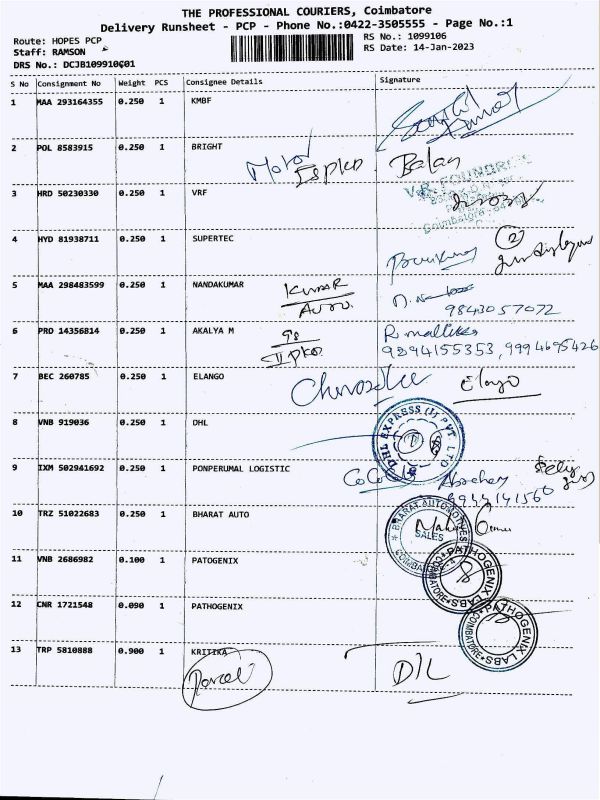 THE PROFESSIONAL COURIERS, Coimbatore
Delivery Runsheet - PCP - Phone No.:0422-3505555 - Page No.:1
Route: HOPES PCP
RS No.: 1099106
Staff: RAMSON
RS Date: 14-Jan-2023
DRS No.: DCJB109910601
S No Consignment No Weight PCS Consignee Details Signature
1 MAA 293164355 0.250 1 KMBF
2 POL 8583915 0.250 1 BRIGHT
Motor Balan
3 HRD 50230330 0.250 1 VRF
V.R. FOUNDRIES
Coimbatore
4 HYD 81938711 0.250 1 SUPERTEC
2
5 MAA 298483599 0.250 1 NANDAKUMAR
KUMAR
AUTO
9843057072
6 PRD 14356814 0.250 1 AKALYA M
R. mallika
9894155353, 9994695426
7 BEC 260785 0.250 1 ELANGO
Elango
8 VNB 919036 0.250 1 DHL
DHL EXPRESS (I) PVT. LTD
9 IXM 502941692 0.250 1 PONPERUMAL LOGISTIC
Abraham
9944141560
10 TRZ 51022683 0.250 1 BHARAT AUTO
BHARAT AUTOMOTIVES
SALES
11 VNB 2686982 0.100 1 PATOGENIX
PATHOGENIX LABS
COIMBATORE
12 CNR 1721548 0.090 1 PATHOGENIX
PATHOGENIX LABS
COIMBATORE
13 TRP 5810888 0.900 1 KRITIKA
Parcel
D/L